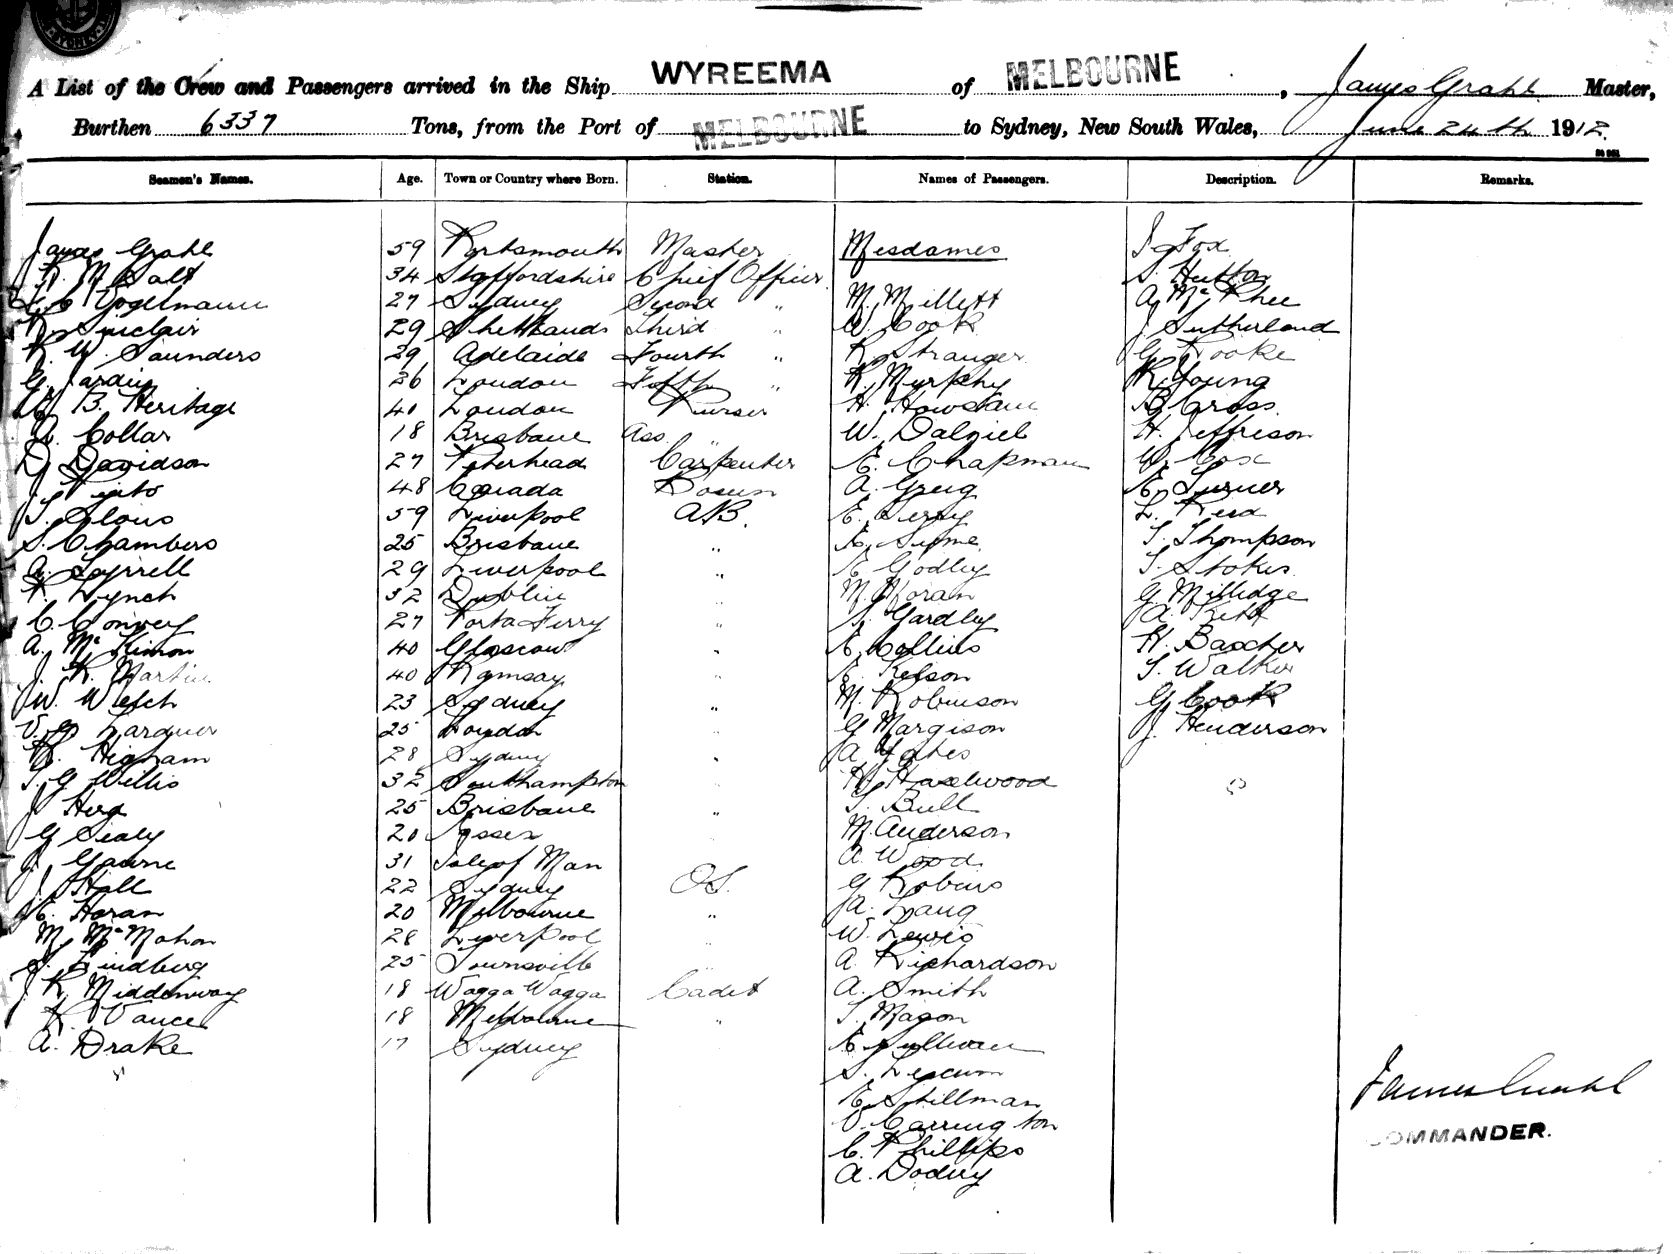 SYDNEY
A List of the Crew and Passengers arrived in the Ship WYREEMA of MELBOURNE, James Grahl Master,
Burthen 6337 Tons, from the Port of MELBOURNE to Sydney, New South Wales, June 24th 1912.
Seamen's Names. Age. Town or Country where Born. Station. Names of Passengers. Description. Remarks.
James Grahl 59 Portsmouth Master Mesdames J Fox
R. M. Salt 34 Staffordshire Chief Officer S. Hutton
Vogelmann 27 Sydney Second " M. Millett A. McPhee
Sinclair 29 Shetlands Third " W. Cook J. Sutherland
R. W. Saunders 29 Adelaide Fourth " R. Stranger G. Rooke
G. Jardin 26 London Fifth " R. Murphy R. Young
B. Heritage 40 London Purser H. B. Cross
A. Collar 18 Brisbane Ass. " W. Dalziel H. Jeffrison
D. Davidson 27 Peterhead Carpenter E. Chapman W. Cox
48 Canada Bosun A. Greig E. Turner
59 Liverpool A.B. E. Terry L. Reid
S. Chambers 25 Brisbane " E. Syme T. Thompson
A. Tyrrell 29 Liverpool " E. Godley T. Stokes
Lynch 32 Dublin " M. Horan G. Milledge
C. Convery 27 Porta Ferry " Yardley A.
A. McKimon 40 Glascow " E. Collins H. Baxter
J. R. Martin 40 Ramsay " Kelson T. Walker
W. Welch 23 Sydney " M. Robinson G. Cook
V. G. Larduer 25 " G. Margison J. Henderson
Higham 28 Sydney " A. Yates
T. G. Willis 32 Southampton H. Haselwood
J. Hog 25 Brisbane " T. Bull
G. Sealy 20 Essex M. Anderson
J. Gawne 31 Isle of Man A. Wood
J. Hall 22 Sydney O.S. G. Robins
E. Horan 20 Melbourne " A. Laug
M. McMahon 28 Liverpool " W. Lewis
S. Lindberg 25 Townsville " A. Richardson
J. R. Middenway 18 Wagga Wagga Cadet A. Smith
R. Vance 18 Melbourne " T. Mason
A. Drake 17 Sydney E. Sullivan
S.
E. Stillman
V. Carrington
C. Phillips
A.
James Grahl
COMMANDER.